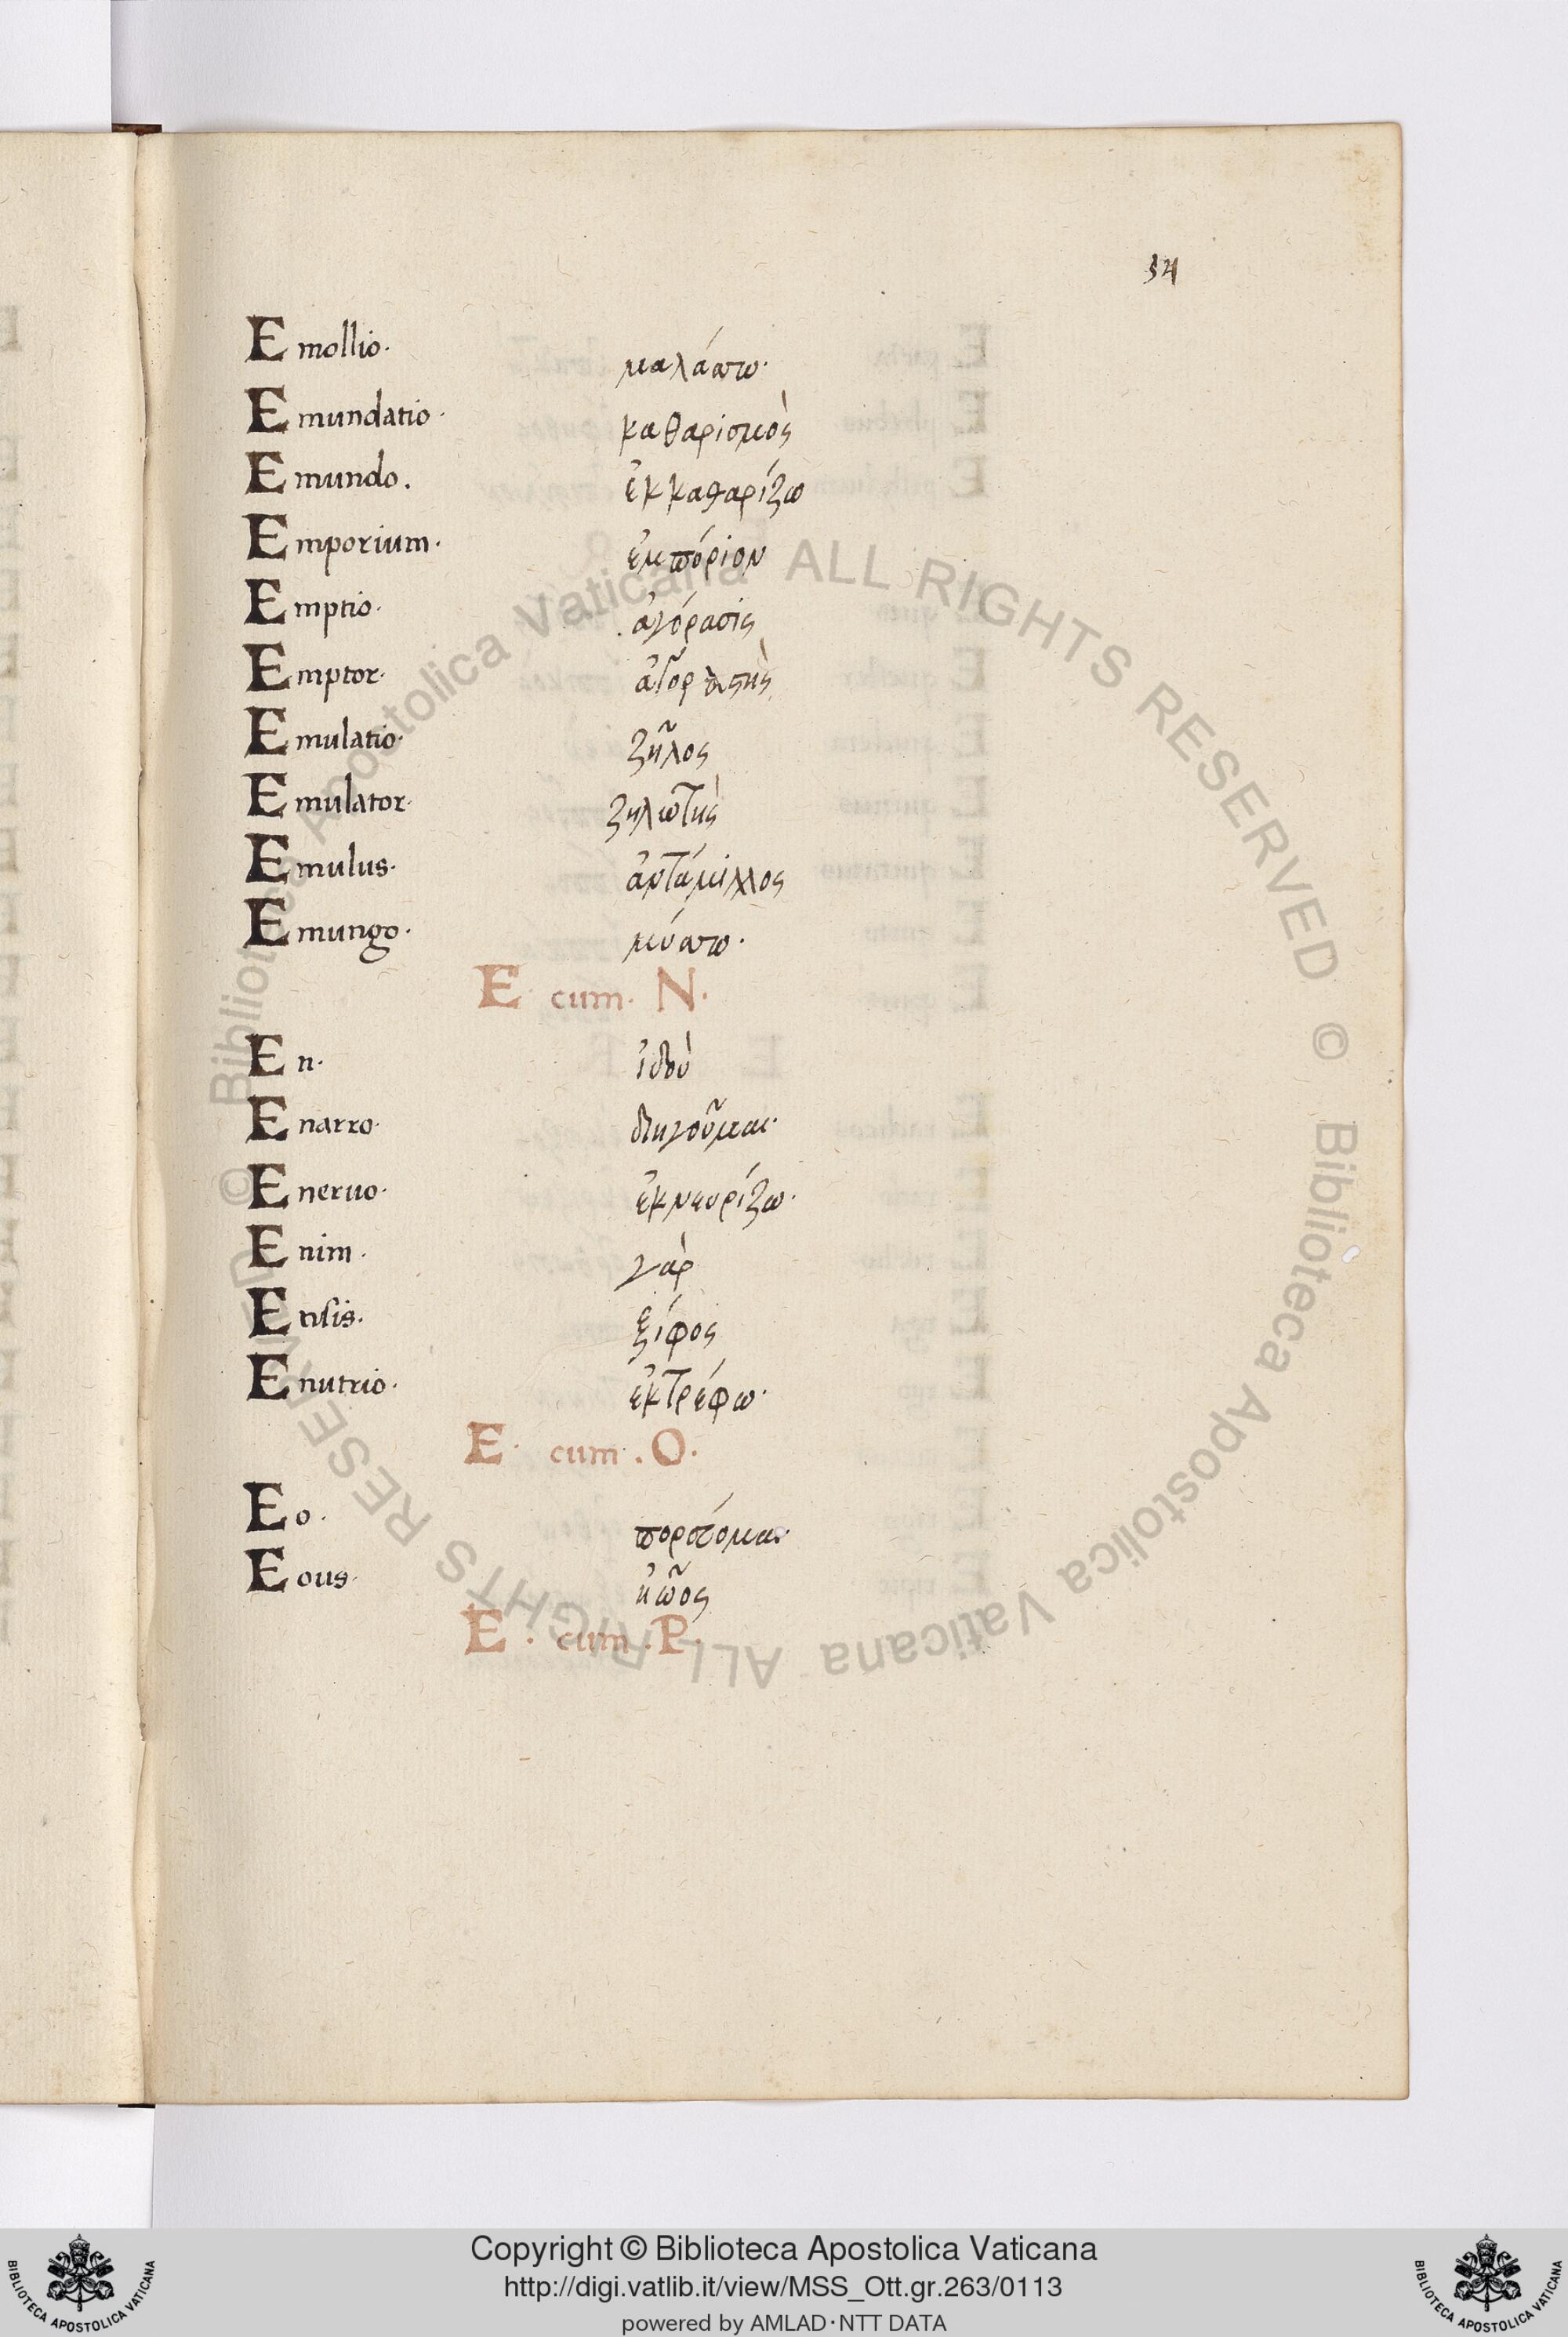 54
Emollio· μαλάσσω·
Emundatio· καθαρισμὸς
Emundo. ἐκκαθαρίζω
Emporium· ἐμπόριον
Emptio· ἀγόρασις
Emptor· ἀγοραστὴς
Emulatio· ζῆλος
Emulator· ζηλωτὴς
Emulus· ἀντάμιλλος
Emungo· μύσσω·
E· cum· N·
En· ἰδοὺ
Enarro· διηγοῦμαι·
Eneruo· ἐκνευρίζω·
Enim· γὰρ
Ensis· ξίφος
Enutrio· ἐκτρέφω·
E· cum· O·
Eo· πορεύομαι·
Eous· ἠῶος
E· cum· P·
© Biblioteca Apostolica Vaticana ALL RIGHTS RESERVED © Biblioteca Apostolica Vaticana ALL RIGHTS RESERVED
Copyright © Biblioteca Apostolica Vaticana
http://digi.vatlib.it/view/MSS_Ott.gr.263/0113
powered by AMLAD·NTT DATA
BIBLIOTECA APOSTOLICA VATICANA
BIBLIOTECA APOSTOLICA VATICANA